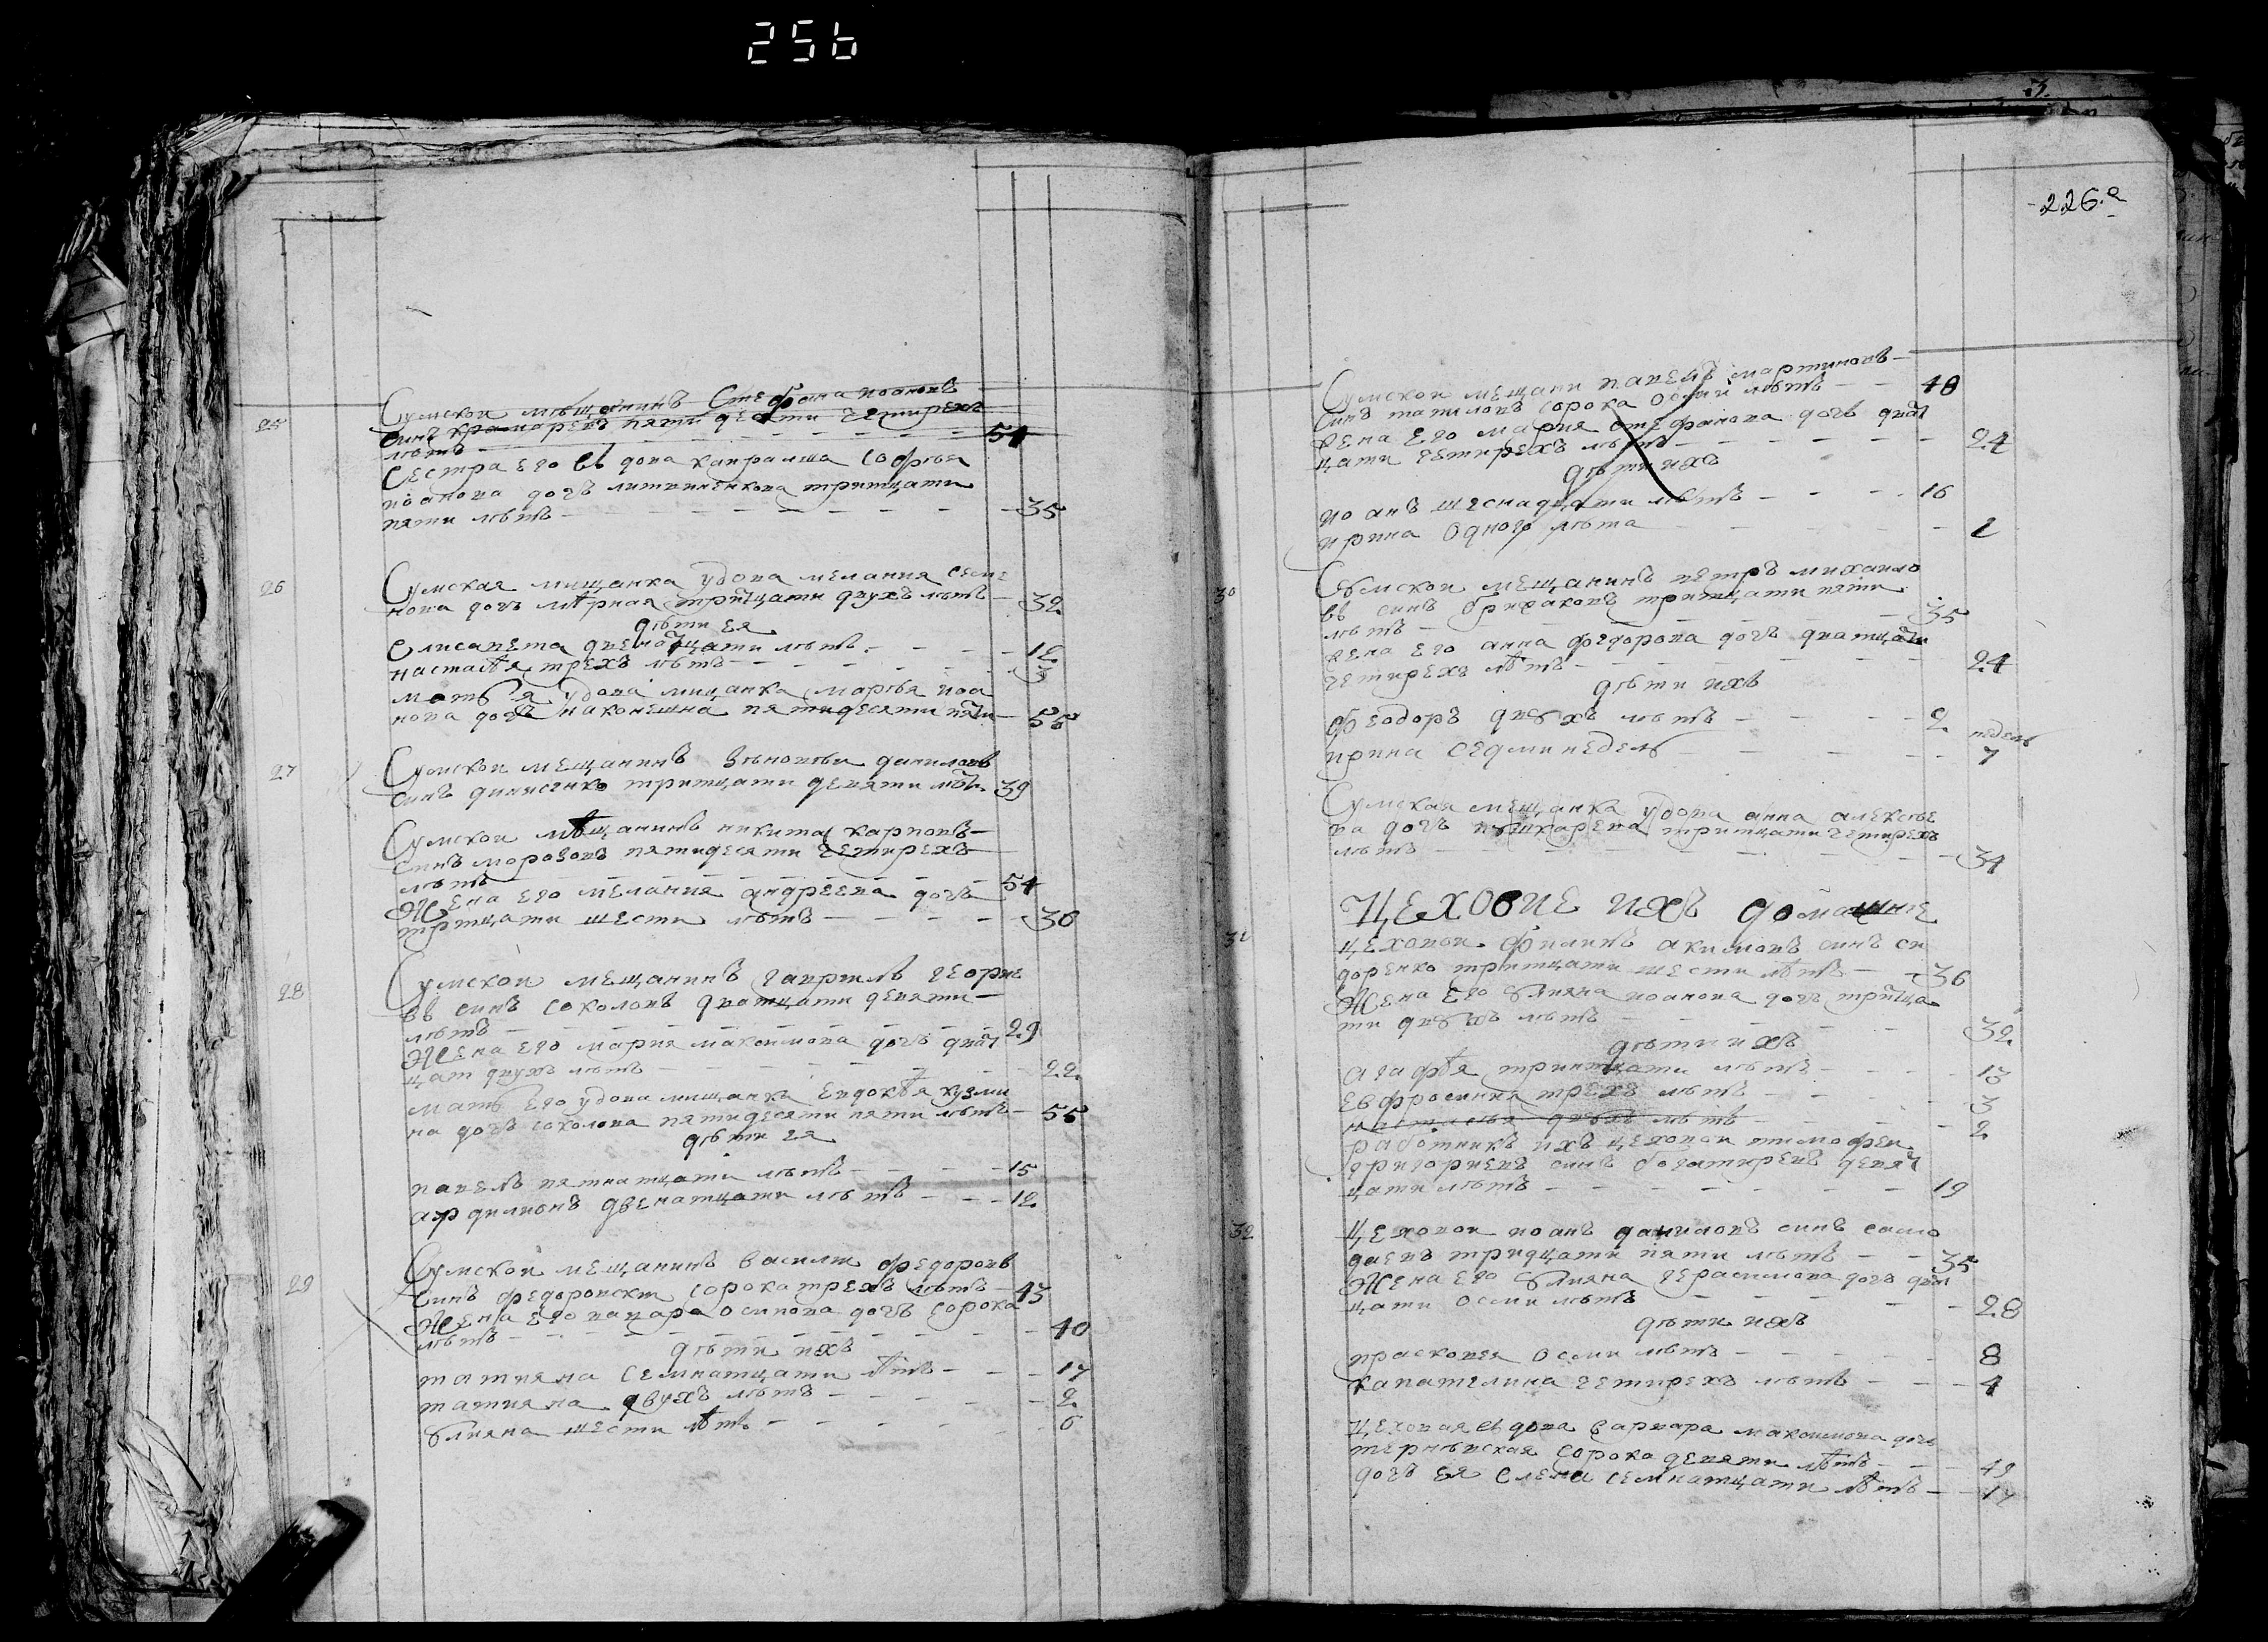 256
226.а
25
Сумскои мѣщанинъ Стефанъ Иоановъ
синъ крамаревъ пяти десяти четирехъ
лѣтъ 54
Сестра его вдова капралша Софья
иоанова дочъ литвиненкова тритцати
пяти лѣтъ 35
26
Сумская мищанка удова мелания семе
нова дочъ тритцати двухъ лѣтъ 32
дѣти ея
Елисавета двенатцати лѣтъ 12
настася трехъ лѣтъ 3
мать я удова мищанка марья иоа
нова дочъ наконешна пятидесяти пяти 55
27
Сумскои мещанинъ Зѣновеи даниловъ
синъ динисенко тритцати девяти лѣтъ 39
Сумскои мѣщанинъ никита карповъ
синъ морозовъ пятидесяти четирехъ
лѣтъ 54
Жена его мелания андреева дочъ
тритцати шести лѣтъ 36
28
Сумскои мещанинъ гаврилъ георгие
въ синъ соколовъ дватцати девяти
лѣтъ 29
Жена его мария максимова дочъ дват
цат двухъ лѣтъ 22
мать его удова мищанка Евдокѣя кузми
на дочъ соколова пятидесяти пяти лѣтъ 55
дѣти ея
павелъ пятнатцати лѣтъ 15
ардилионъ двенатцати лѣтъ 12
29
Сумскои мещанинъ василии федоровъ
синъ федоровски сорока трехъ лѣтъ 43
Жена его варвара осипова дочъ сорока
лѣтъ 40
дѣти ихъ
татияна семнатцати лѣтъ 17
татияна двухъ лѣтъ 2
улияна шести лѣтъ 6
Сумскои мещани павелъ мартиновъ
синъ таниловъ сорока осми лѣтъ 48
Жена его мария стефанова дочъ дват
цати четирехъ лѣтъ 24
дѣти ихъ
иоанъ шеснадцати лѣтъ 16
ирина одного лѣта 1
30
Сумскои мещанинъ петръ михаило
въ синъ тритцати пяти
лѣтъ 35
жена его анна федорова дочъ дватцати
четирехъ лѣтъ 24
дѣти ихъ
феодоръ двухъ лѣтъ 2
недель
ирина седми недель 7
Сумская мещанка удова анна алексѣе
ва дочъ пушкарева тритцати четирехъ
лѣтъ 34
Цеховие ихъ домашние
31
цеховои акимовъ синъ си
доренко тритцати шести лѣтъ 36
Жена его улияна иоанова дочъ тритца
ти двухъ лѣтъ 32
дѣти ихъ
агафѣя тринатцати лѣтъ 13
евфросиния трехъ лѣтъ 3
настасья двухъ лѣтъ 2
работникъ ихъ цеховои тимофеи
григориевъ синъ богатиревъ девят
цати лѣтъ 19
32
Цеховои иоанъ даниловъ синъ само
даевъ тридцати пяти лѣтъ 35
Жена его улияна герасимова дочъ дват
цати осми лѣтъ 28
дѣти ихъ
прасковея осми лѣтъ 8
катателина четирехъ лѣтъ 4
Цеховая вдова варвара максимова дочъ
терновская сорока девяти лѣтъ 49
дочъ ея елена семнатцати лѣтъ 17